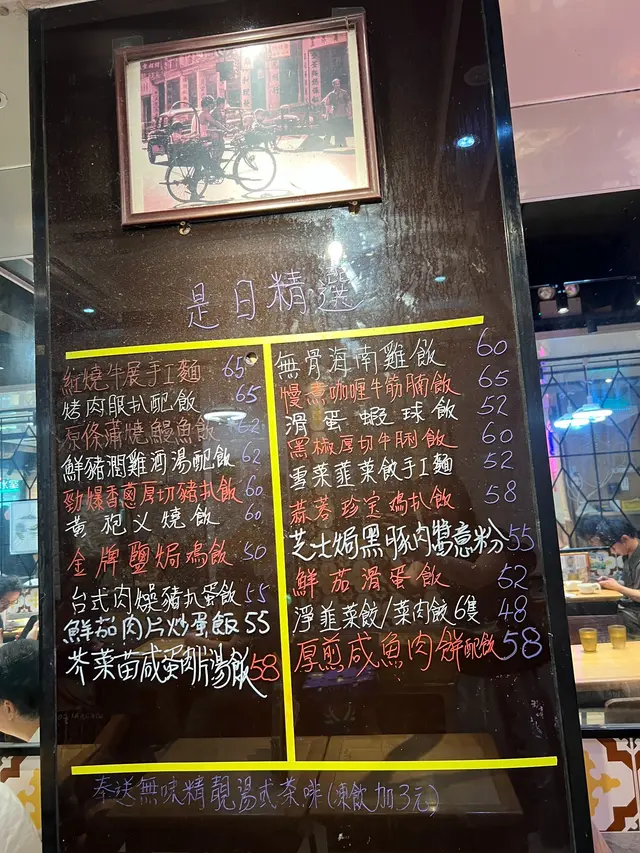 是日精選
紅燒牛展手工麵 65
烤肉眼扒配飯 65
原條蒲燒鰻魚飯 62
鮮豬潤雞酒湯配飯 62
勁爆香蔥厚切豬扒飯 60
黃袍乂燒飯 60
金牌鹽焗鸡飯 50
台式肉燥豬扒蛋飯 55
鮮茄肉片炒蛋飯 55
芥菜苗咸蛋肉片湯飯 58
無骨海南雞飯 60
慢煮咖喱牛筋腩飯 65
滑蛋蝦球飯 52
黑椒厚切牛脷飯 60
雪菜韮菜餃手工麵 52
蒜蓉珍宝鸡扒飯 58
芝士焗黑豚肉醬意粉 55
鮮茄滑蛋飯 52
淨韮菜餃/菜肉餃6隻 48
厚煎咸魚肉餅配飯 58
奉送無味精靚湯或茶啡(凍飲加3元)